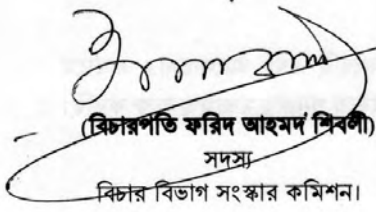 (বিচারপতি ফরিদ আহমদ শিবলী)
সদস্য
বিচার বিভাগ সংস্কার কমিশন।